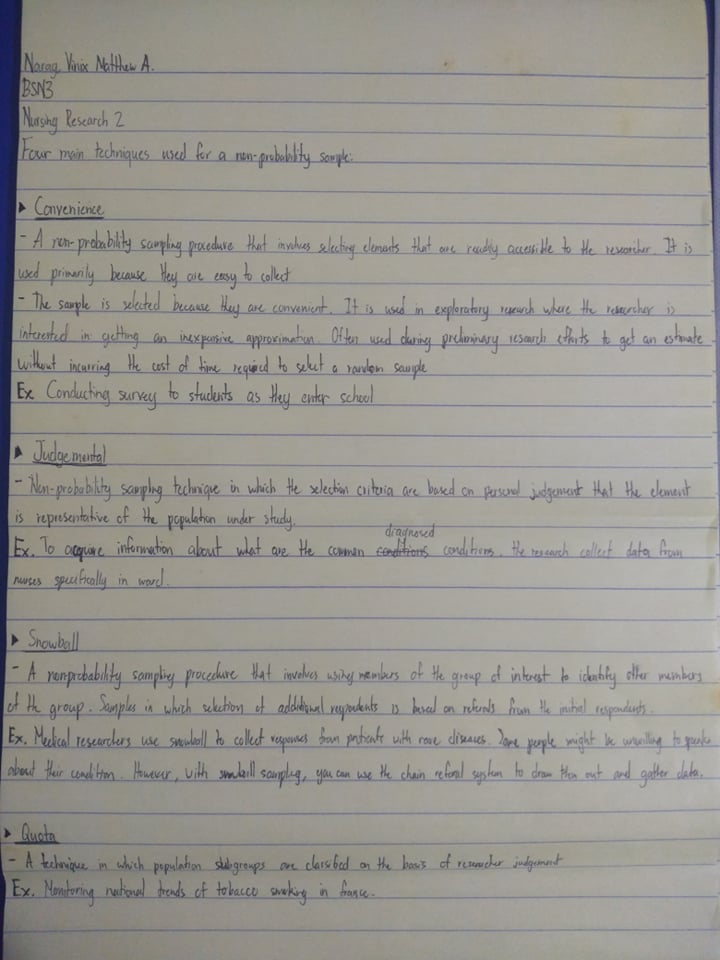 Narag Vinix Matthew A.
BSN3
Nursing Research 2
Four main techniques used for a non-probability sample:
▸ Convenience
- A non-probability sampling procedure that involves selecting elements that are readily accessible to the researcher. It is
used primarily because they are easy to collect
- The sample is selected because they are convenient. It is used in exploratory research where the researcher is
interested in getting an inexpensive approximation. Often used during preliminary research efforts to get an estimate
without incurring the cost of time required to select a random sample
Ex. Conducting survey to students as they enter school
▸ Judgemental
- Non-probability sampling technique in which the selection criteria are based on personal judgement that the element
is representative of the population under study.
diagnosed
Ex. To acquare information about what are the common conditions conditions. the research collect data from
nurses specifically in ward.
▸ Snowball
- A nonprobability sampling procedure that involves using members of the group of interest to identify other members
of the group. Samples in which selection of additional respondents is based on referals from the initial respondents.
Ex. Medical researchers use snowball to collect responses from patients with rare diseases. Some people might be unwilling to speak
about their condition. However, with snowball sampling, you can use the chain referal system to draw them out and gather data.
▸ Quota
- A technique in which population subgroups are classified on the basis of researcher judgement
Ex. Monitoring national trends of tobacco smoking in france.